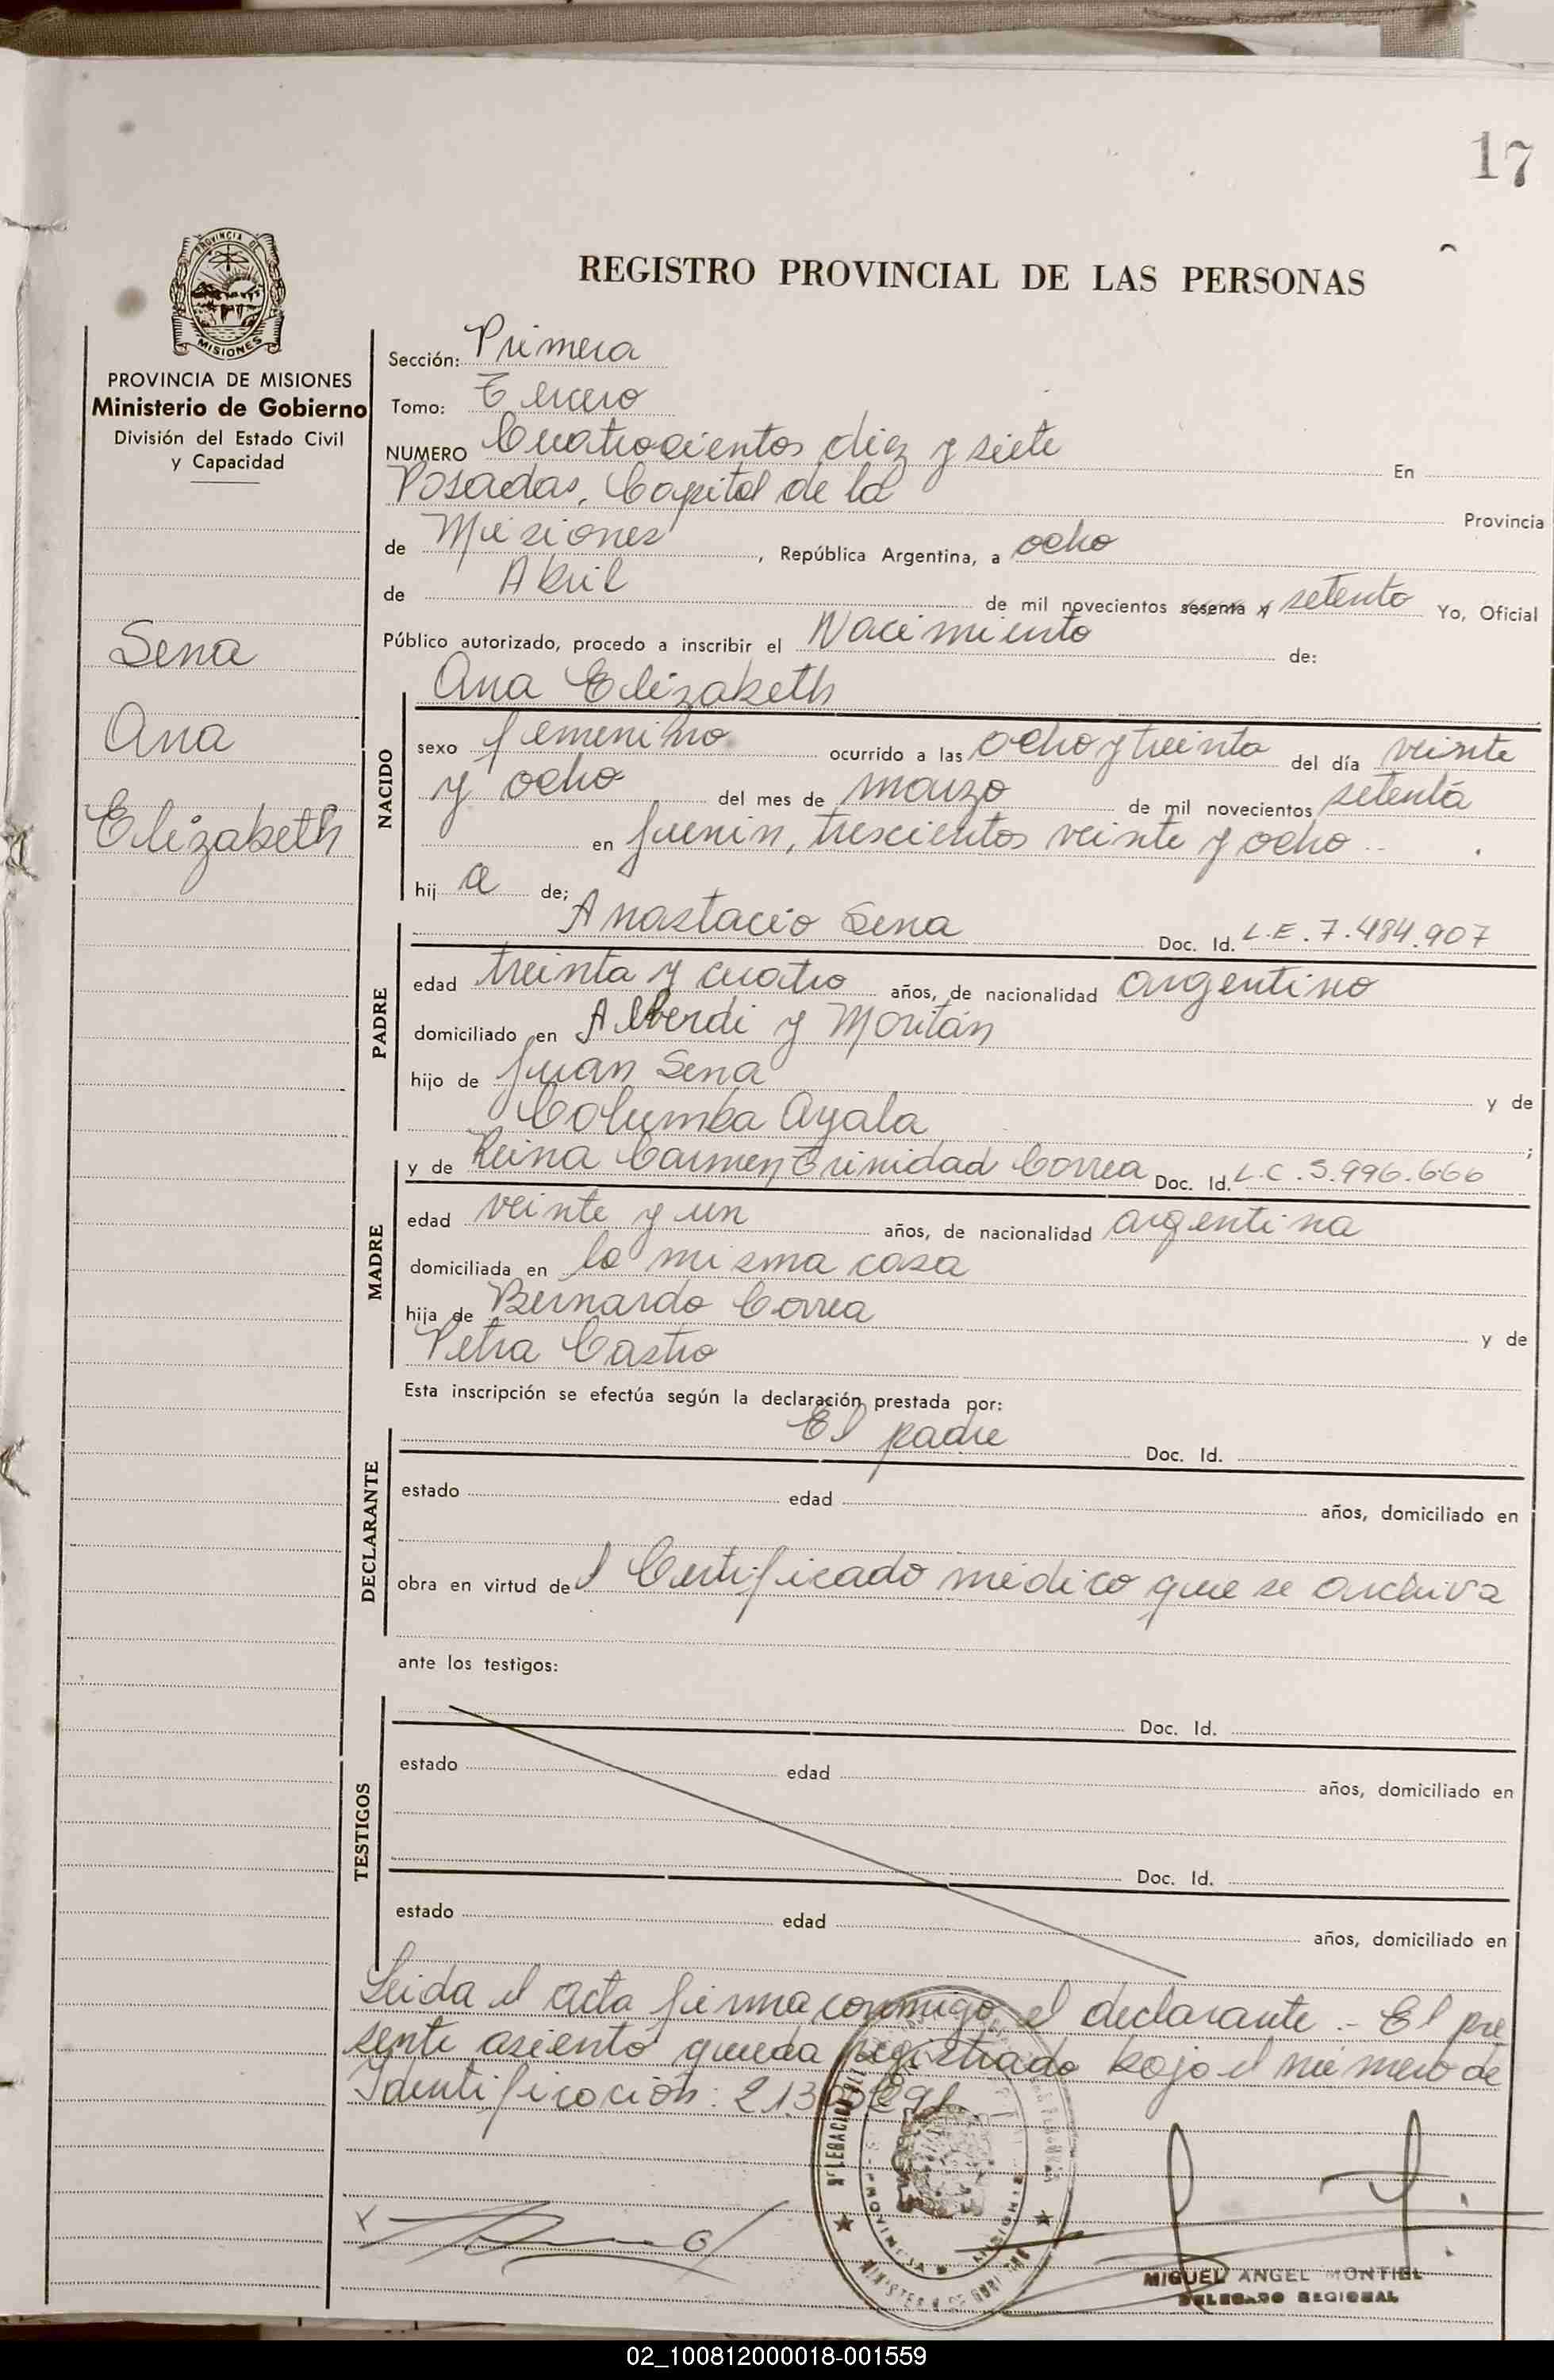 17
REGISTRO PROVINCIAL DE LAS PERSONAS
PROVINCIA DE
MISIONES
PROVINCIA DE MISIONES
Ministerio de Gobierno
División del Estado Civil
y Capacidad
Sena
Ana
Elizabeth
Sección: Primera
Tomo: Tercero
NUMERO Cuatrocientos diez y siete En
Posadas, Capital de la Provincia
de Misiones, República Argentina, a ocho
de Abril de mil novecientos sesenta y setenta Yo, Oficial
Público autorizado, procedo a inscribir el Nacimiento de:
Ana Elizabeth
NACIDO
sexo femenino ocurrido a las ocho y treinta del día veinte
y ocho del mes de marzo de mil novecientos setenta
en Junin, trescientos veinte y ocho
hij a de;
Anastacio Sena Doc. Id. L.E. 7.484.907
PADRE
edad treinta y cuatro años, de nacionalidad argentino
domiciliado en Alberdi y Moritán
hijo de Juan Sena y de
Columba Ayala ;
y de Reina Carmen Trinidad Correa Doc. Id. L.C. 5.996.666
MADRE
edad veinte y un años, de nacionalidad argentina
domiciliada en la misma casa
hija de Bernardo Correa y de
Petra Castro
Esta inscripción se efectúa según la declaración prestada por:
El padre Doc. Id.
DECLARANTE
estado edad años, domiciliado en
obra en virtud de l Certificado médico que se archiva
ante los testigos:
Doc. Id.
TESTIGOS
estado edad años, domiciliado en
Doc. Id.
estado edad años, domiciliado en
Leida el acta firma conmigo el declarante.- El pre
sente asiento queda registrado bajo el número de
Identificación:
MIGUEL ANGEL MONTIEL
DELEGADO REGIONAL
02_100812000018-001559